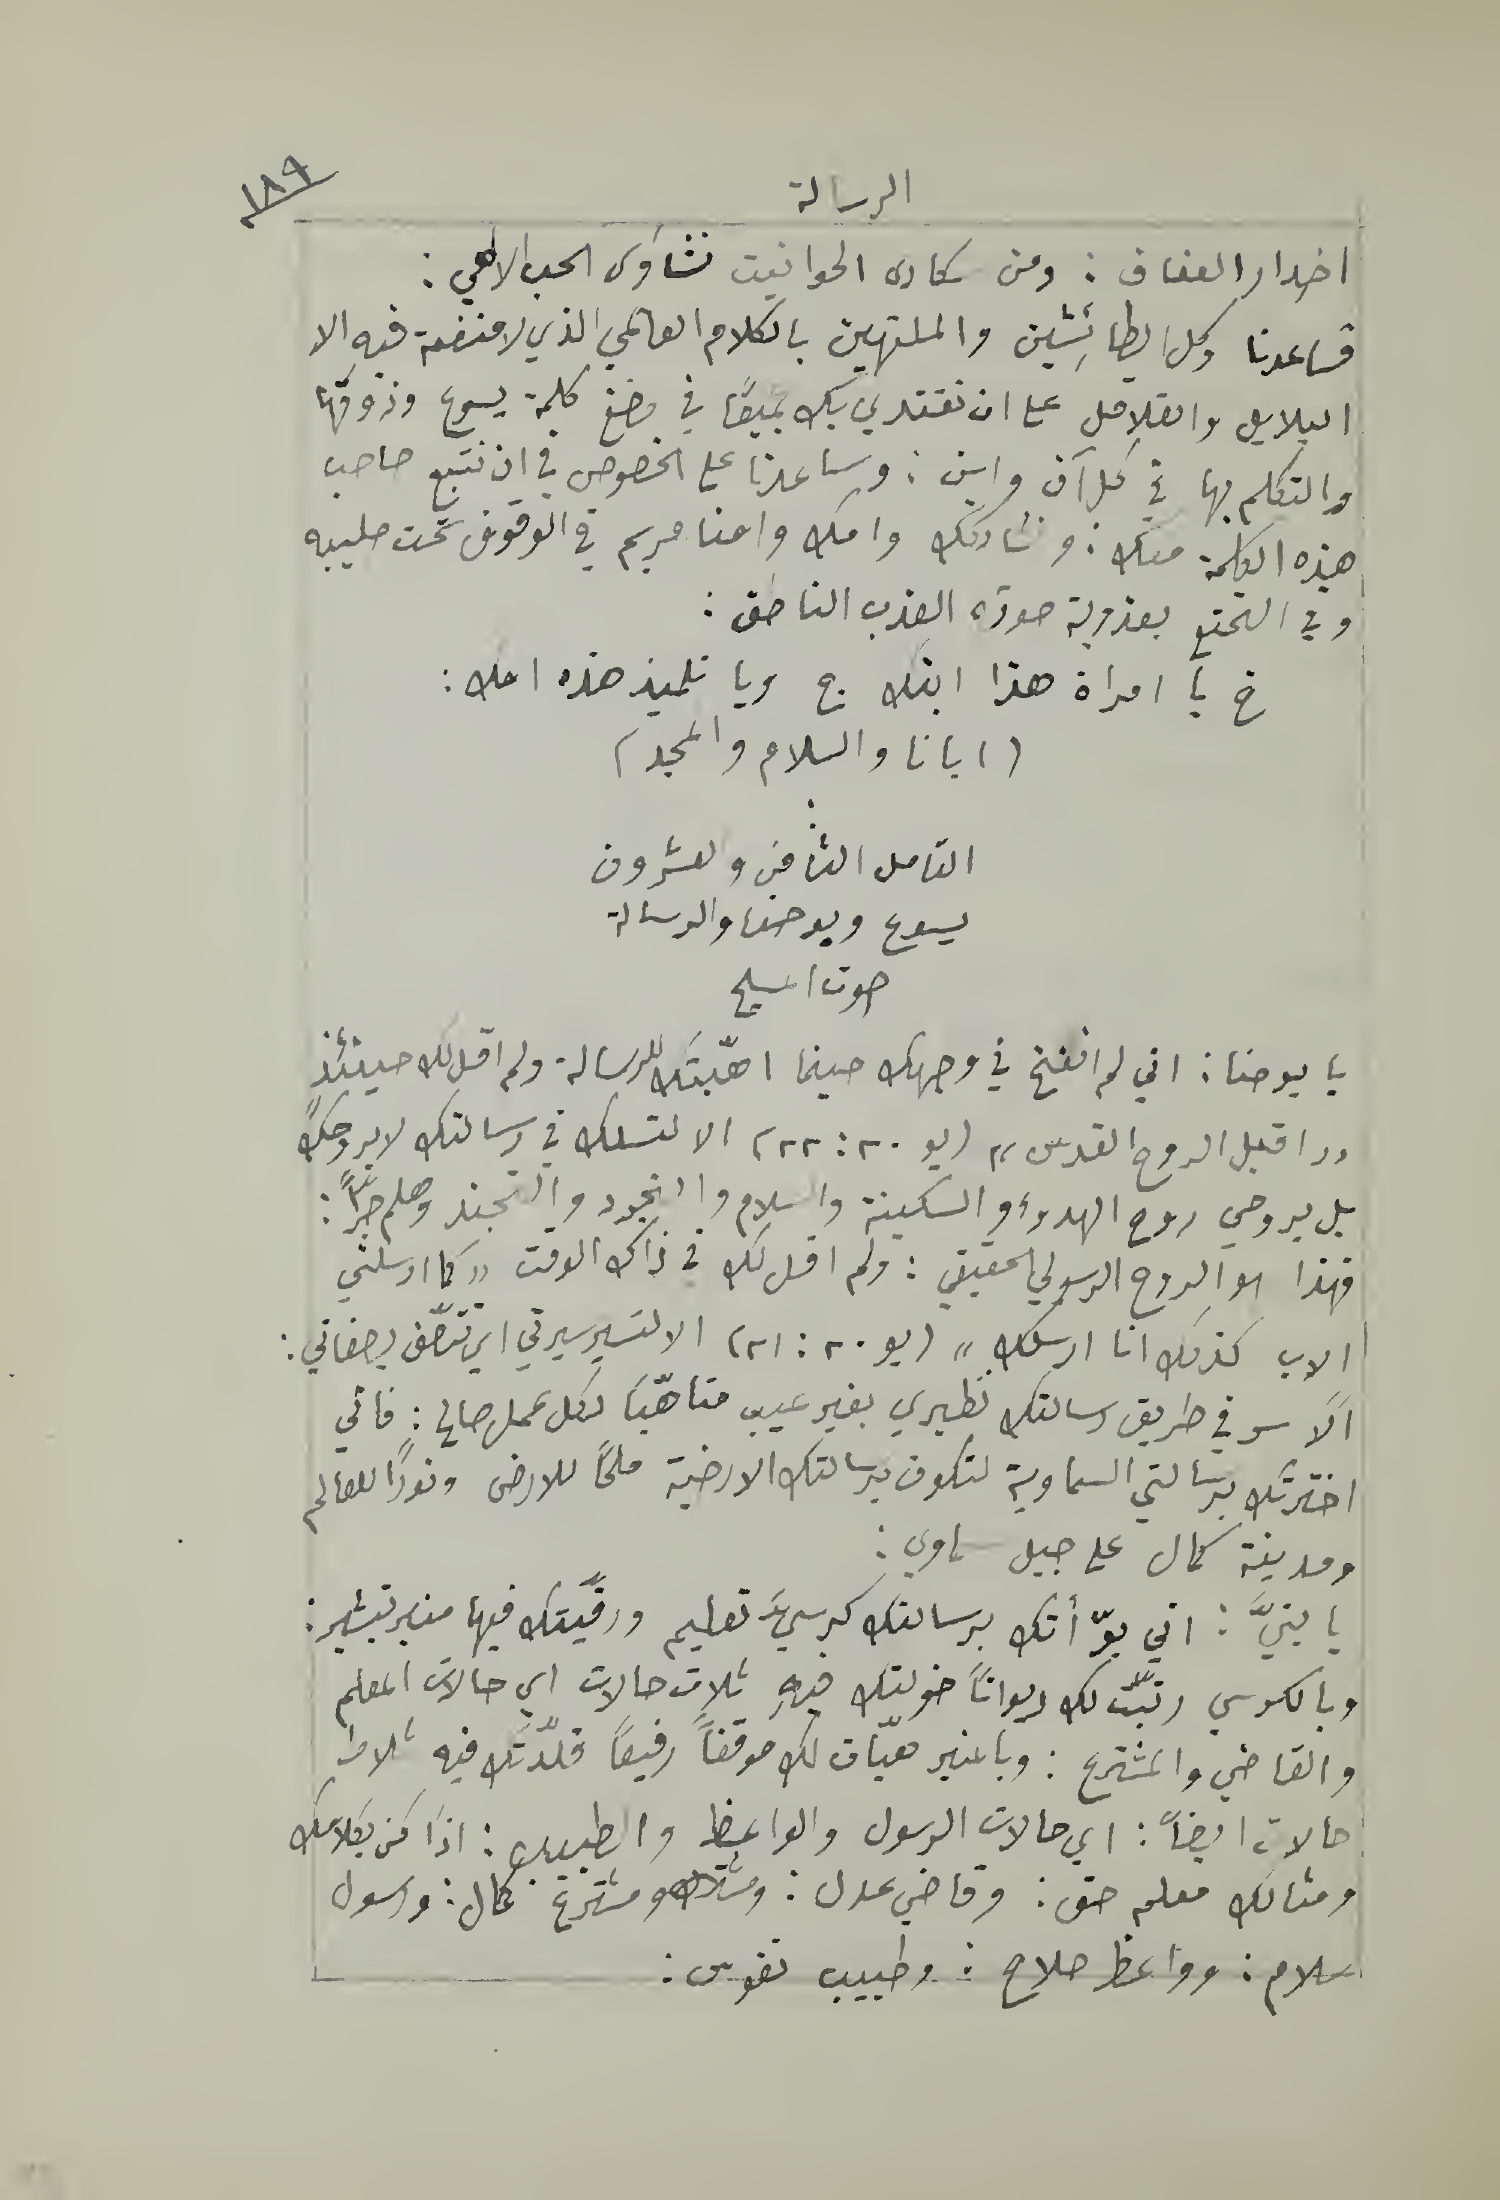 ١٨٩
الرسالة
اخدار العفاف : ومن سكارى الحوانيت نشاوى الحب الالهي :
فساعدنا وكل الطائشين والملتهين بالكلام العالمي الذي لا منفعة فيه الا
البلابل والقلاقل على ان نقتدي بك جميعًا في مضغ كلمة يسوع وذوقها
والتكلم بها في كل آن واين : وساعدنا على الخصوص في ان نتبع صاحب
هذه الكلمة معك : ونشاركك وامك وامنا مريم في الوقوف تحت صليبه
وفي التمتع بعذوبة صوته العذب الناطق :
يا امراة هذا ابنك ويا تلميذ هذه امك :
( ابانا والسلام والمجد )
التامل الثامن والعشرون
يسوع ويوحنا والرسالة
صوت المسيح
يا يوحنا : اني لم انفخ في وجهك حينما اهّبتك للرسالة ولم اقل لك حينئذٍ
" اقبل الروح القدس " (يو ٢٠ : ٢٢) الا لتسلك في رسالتك لا بروحك
بل بروحي روح الهدوء والسكينة والسلام والتجرد والتجند وهلم جرًّا :
فهذا هو الروح الرسولي الحقيقي : ولم اقل لك في ذاك الوقت " كما ارسلني
الاب كذلك انا ارسلك " (يو ٢٠ : ٢١) الا لتسير سيرتي اي تتصّف بصفاتي :
الا سر في طريق رسالتك نظيري بغير عيب متاهّبًا لكل عمل صالح : فاني
اخترتك برسالتي السماوية لتكون برسالتك الارضية ملحًا للارض ونورًا للعالم
ومدينة كمال على جبل سماوي :
يا بنيَّ : اني بوّأتك برسالتك كرسيَّ تعليم ورقّيتك فيها منبر تبشير :
وبالكرسي رتبّت لك ديوانًا خولتك فيهِ ثلاث حالات اي حالات المعلم
والقاضي والمشترع : وبالمنبر هيّات لك موقفًا رفيعًا قلّدتك فيه ثلاث
حالات ايضًا : اي حالات الرسول والواعظ والطبيب : اذًا كن بكلامك
ومثالك معلم حق : وقاضي عدل : ومشترع كمال : ورسول
سلام : وواعظ صلاح : وطبيب نفوس :